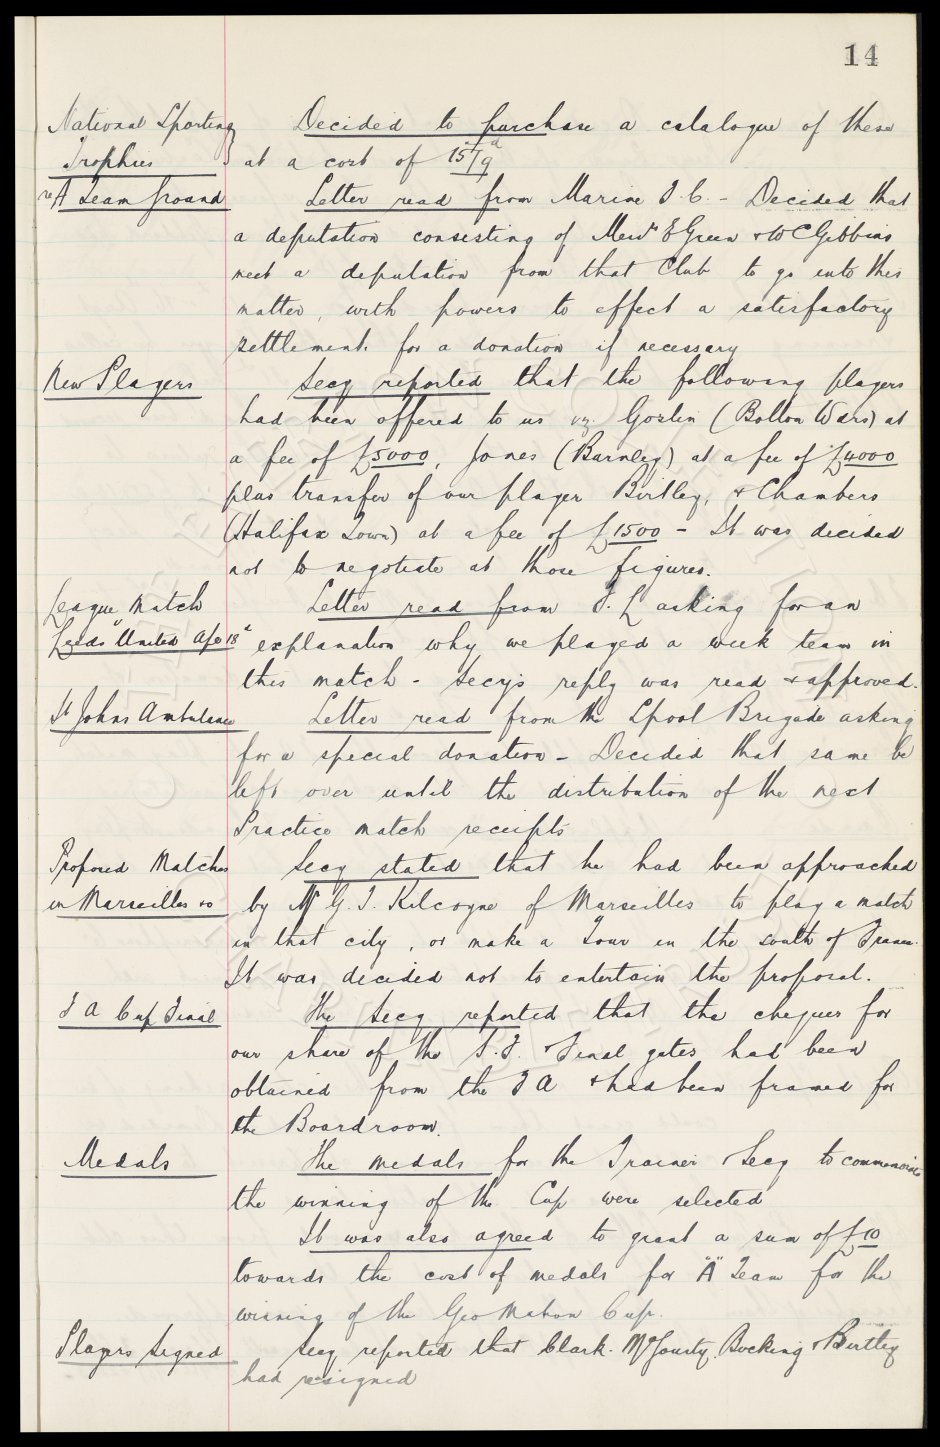 14
National Sporting Decided to purchase a catalogue of these
Trophies at a cost of 15/9d
re A Team Ground Letter read from Marine F.C. - Decided that
a deputation consisting of Messrs E Green & W C Gibbins
meet a deputation from that Club to go into this
matter, with powers to effect a satisfactory
settlement. for a donation if necessary
New Players Secy reported that the following players
had been offered to us viz. Goslin (Bolton Wdrs) at
a fee of £5000, Jones (Barnley) at a fee of £4000
plus transfer of our player Birtley, & Chambers
(Halifax Town) at a fee of £1500 - It was decided
not to negotiate at those figures.
League Match Letter read from F.L asking for an
Leeds United Apl 18th explanation why we played a weak team in
this match - Secy's reply was read & approved.
St Johns Ambulance Letter read from the Lpool Brigade asking
for a special donation - Decided that same be
left over until the distribution of the next
Practice match receipts
Proposed Matches Secy stated that he had been approached
in Marseilles by Mr G. T. Kilcoyne of Marseilles to play a match
in that city, or make a Tour in the south of France.
It was decided not to entertain the proposal.
F A Cup Final The Secy reported that the cheques for
our share of the S.F. & Final gates had been
obtained from the F A & had been framed for
the Boardroom.
Medals The medals for the Trainer & Secy to commemorate
the winning of the Cup were selected
It was also agreed to grant a sum of £10
towards the cost of medals for "A" Team for the
winning of the Geo Mahon Cup.
Players Signed Secy reported that Clark. McGourty, Bocking & Birtley
had resigned